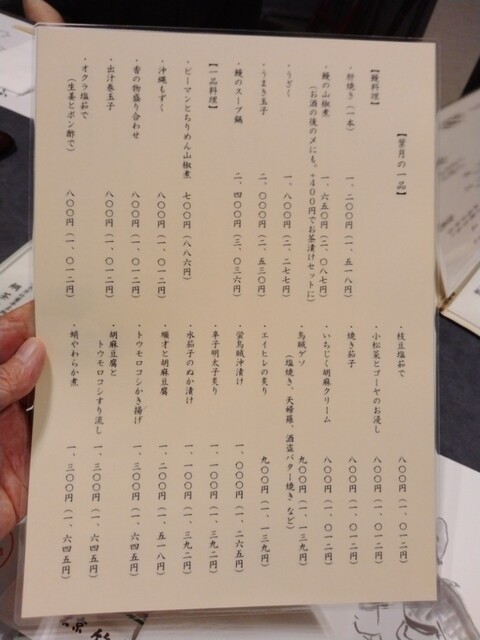 【葉月の一品】
【鰻料理】
・肝焼き(一本) 一、二〇〇円(一、五一八円)
・鰻の山椒煮 一、六五〇円(二、〇八七円)
(お酒の後の〆にも。+400円でお茶漬けセットに)
・うざく 一、八〇〇円(二、二七七円)
・うまき玉子 二、〇〇〇円(二、五三〇円)
・鰻のスープ鍋 二、四〇〇円(三、〇三六円)
【一品料理】
・ピーマンとちりめん山椒煮 七〇〇円(八八六円)
・沖縄もずく 八〇〇円(一、〇一二円)
・香の物盛り合わせ 八〇〇円(一、〇一二円)
・出汁巻玉子 八〇〇円(一、〇一二円)
・オクラ塩茹で 八〇〇円(一、〇一二円)
(生姜とポン酢で)
・枝豆塩茹で 八〇〇円(一、〇一二円)
・小松菜とゴーヤのお浸し 八〇〇円(一、〇一二円)
・焼き茄子 八〇〇円(一、〇一二円)
・いちじく胡麻クリーム 八〇〇円(一、〇一二円)
・烏賊ゲソ 九〇〇円(一、一三九円)
(塩焼き、天婦羅、酒盗バター焼き など)
・エイヒレの炙り 九〇〇円(一、一三九円)
・蛍烏賊沖漬け 一、〇〇〇円(一、二六五円)
・辛子明太子炙り 一、一〇〇円(一、三九二円)
・水茄子のぬか漬け 一、一〇〇円(一、三九二円)
・順才と胡麻豆腐 一、二〇〇円(一、五一八円)
・トウモロコシかき揚げ 一、三〇〇円(一、六四五円)
・胡麻豆腐と
トウモロコシすり流し 一、三〇〇円(一、六四五円)
・蛸やわらか煮 一、三〇〇円(一、六四五円)